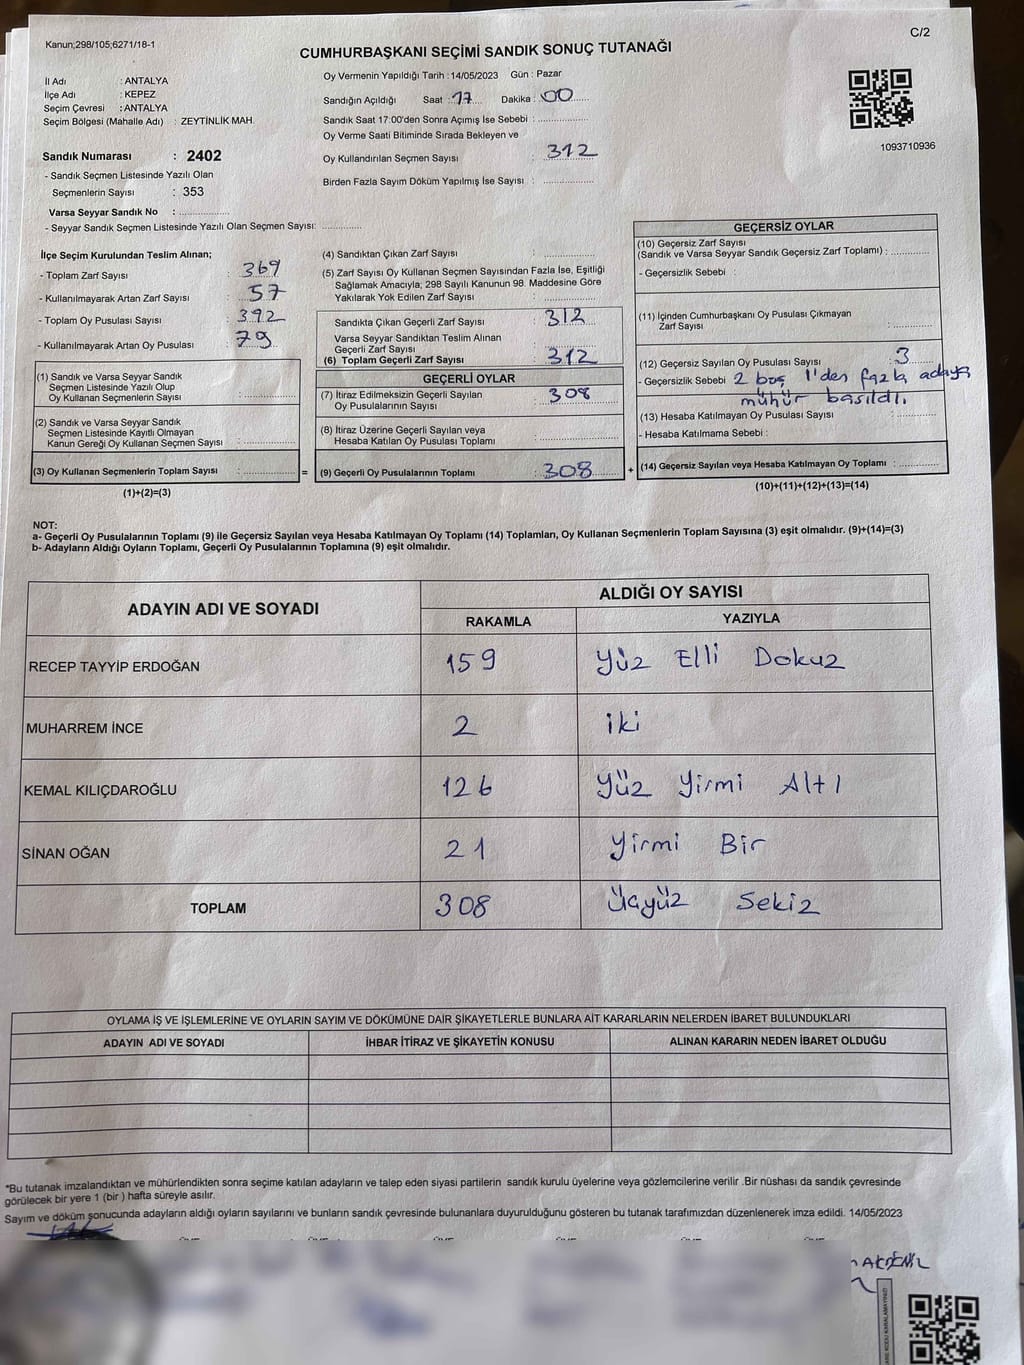 Kanun;298/105;6271/18-1
C/2
CUMHURBAŞKANI SEÇİMİ SANDIK SONUÇ TUTANAĞI
İl Adı : ANTALYA
İlçe Adı : KEPEZ
Seçim Çevresi : ANTALYA
Seçim Bölgesi (Mahalle Adı) : ZEYTİNLİK MAH.
Sandık Numarası : 2402
- Sandık Seçmen Listesinde Yazılı Olan
Seçmenlerin Sayısı : 353
Varsa Seyyar Sandık No : ..................
- Seyyar Sandık Seçmen Listesinde Yazılı Olan Seçmen Sayısı: ..............
Oy Vermenin Yapıldığı Tarih : 14/05/2023 Gün : Pazar
Sandığın Açıldığı Saat : 17 Dakika : 00
Sandık Saat 17:00'den Sonra Açımış İse Sebebi : ..................
Oy Verme Saati Bitiminde Sırada Bekleyen ve
Oy Kullandırılan Seçmen Sayısı : 312
Birden Fazla Sayım Döküm Yapılmış İse Sayısı : ..................
1093710936
İlçe Seçim Kurulundan Teslim Alınan;
- Toplam Zarf Sayısı : 369
- Kullanılmayarak Artan Zarf Sayısı : 57
- Toplam Oy Pusulası Sayısı : 392
- Kullanılmayarak Artan Oy Pusulası : 79
(1) Sandık ve Varsa Seyyar Sandık
Seçmen Listesinde Yazılı Olup
Oy Kullanan Seçmenlerin Sayısı : ..................
(2) Sandık ve Varsa Seyyar Sandık
Seçmen Listesinde Kayıtlı Olmayan
Kanun Gereği Oy Kullanan Seçmen Sayısı : ..................
(3) Oy Kullanan Seçmenlerin Toplam Sayısı : .................. =
(1)+(2)=(3)
(4) Sandıktan Çıkan Zarf Sayısı : ..................
(5) Zarf Sayısı Oy Kullanan Seçmen Sayısından Fazla İse, Eşitliği
Sağlamak Amacıyla; 298 Sayılı Kanunun 98. Maddesine Göre
Yakılarak Yok Edilen Zarf Sayısı : ..................
Sandıkta Çıkan Geçerli Zarf Sayısı : 312
Varsa Seyyar Sandıktan Teslim Alınan
Geçerli Zarf Sayısı : ..................
(6) Toplam Geçerli Zarf Sayısı : 312
GEÇERLİ OYLAR
(7) İtiraz Edilmeksizin Geçerli Sayılan
Oy Pusulalarının Sayısı : 308
(8) İtiraz Üzerine Geçerli Sayılan veya
Hesaba Katılan Oy Pusulası Toplamı : ..................
(9) Geçerli Oy Pusulalarının Toplamı : 308 +
GEÇERSİZ OYLAR
(10) Geçersiz Zarf Sayısı
(Sandık ve Varsa Seyyar Sandık Geçersiz Zarf Toplamı) : ..............
- Geçersizlik Sebebi :
(11) İçinden Cumhurbaşkanı Oy Pusulası Çıkmayan
Zarf Sayısı : ..............
(12) Geçersiz Sayılan Oy Pusulası Sayısı : 3
- Geçersizlik Sebebi 2 boş 1'den fazla adaya
mühür basıldı.
(13) Hesaba Katılmayan Oy Pusulası Sayısı : ..................
- Hesaba Katılmama Sebebi :
(14) Geçersiz Sayılan veya Hesaba Katılmayan Oy Toplamı : ..............
(10)+(11)+(12)+(13)=(14)
NOT:
a- Geçerli Oy Pusulalarının Toplamı (9) ile Geçersiz Sayılan veya Hesaba Katılmayan Oy Toplamı (14) Toplamları, Oy Kullanan Seçmenlerin Toplam Sayısına (3) eşit olmalıdır. (9)+(14)=(3)
b- Adayların Aldığı Oyların Toplamı, Geçerli Oy Pusulalarının Toplamına (9) eşit olmalıdır.
ADAYIN ADI VE SOYADI ALDIĞI OY SAYISI
RAKAMLA YAZIYLA
RECEP TAYYİP ERDOĞAN 159 Yüz Elli Dokuz
MUHARREM İNCE 2 iki
KEMAL KILIÇDAROĞLU 126 Yüz Yirmi Altı
SİNAN OĞAN 21 Yirmi Bir
TOPLAM 308 Üçyüz Sekiz
OYLAMA İŞ VE İŞLEMLERİNE VE OYLARIN SAYIM VE DÖKÜMÜNE DAİR ŞİKAYETLERLE BUNLARA AİT KARARLARIN NELERDEN İBARET BULUNDUKLARI
ADAYIN ADI VE SOYADI İHBAR İTİRAZ VE ŞİKAYETİN KONUSU ALINAN KARARIN NEDEN İBARET OLDUĞU
*Bu tutanak imzalandıktan ve mühürlendikten sonra seçime katılan adayların ve talep eden siyasi partilerin sandık kurulu üyelerine veya gözlemcilerine verilir .Bir nüshası da sandık çevresinde
görülecek bir yere 1 (bir ) hafta süreyle asılır.
Sayım ve döküm sonucunda adayların aldığı oyların sayılarını ve bunların sandık çevresinde bulunanlara duyurulduğunu gösteren bu tutanak tarafımızdan düzenlenerek imza edildi. 14/05/2023
AKDENİZ